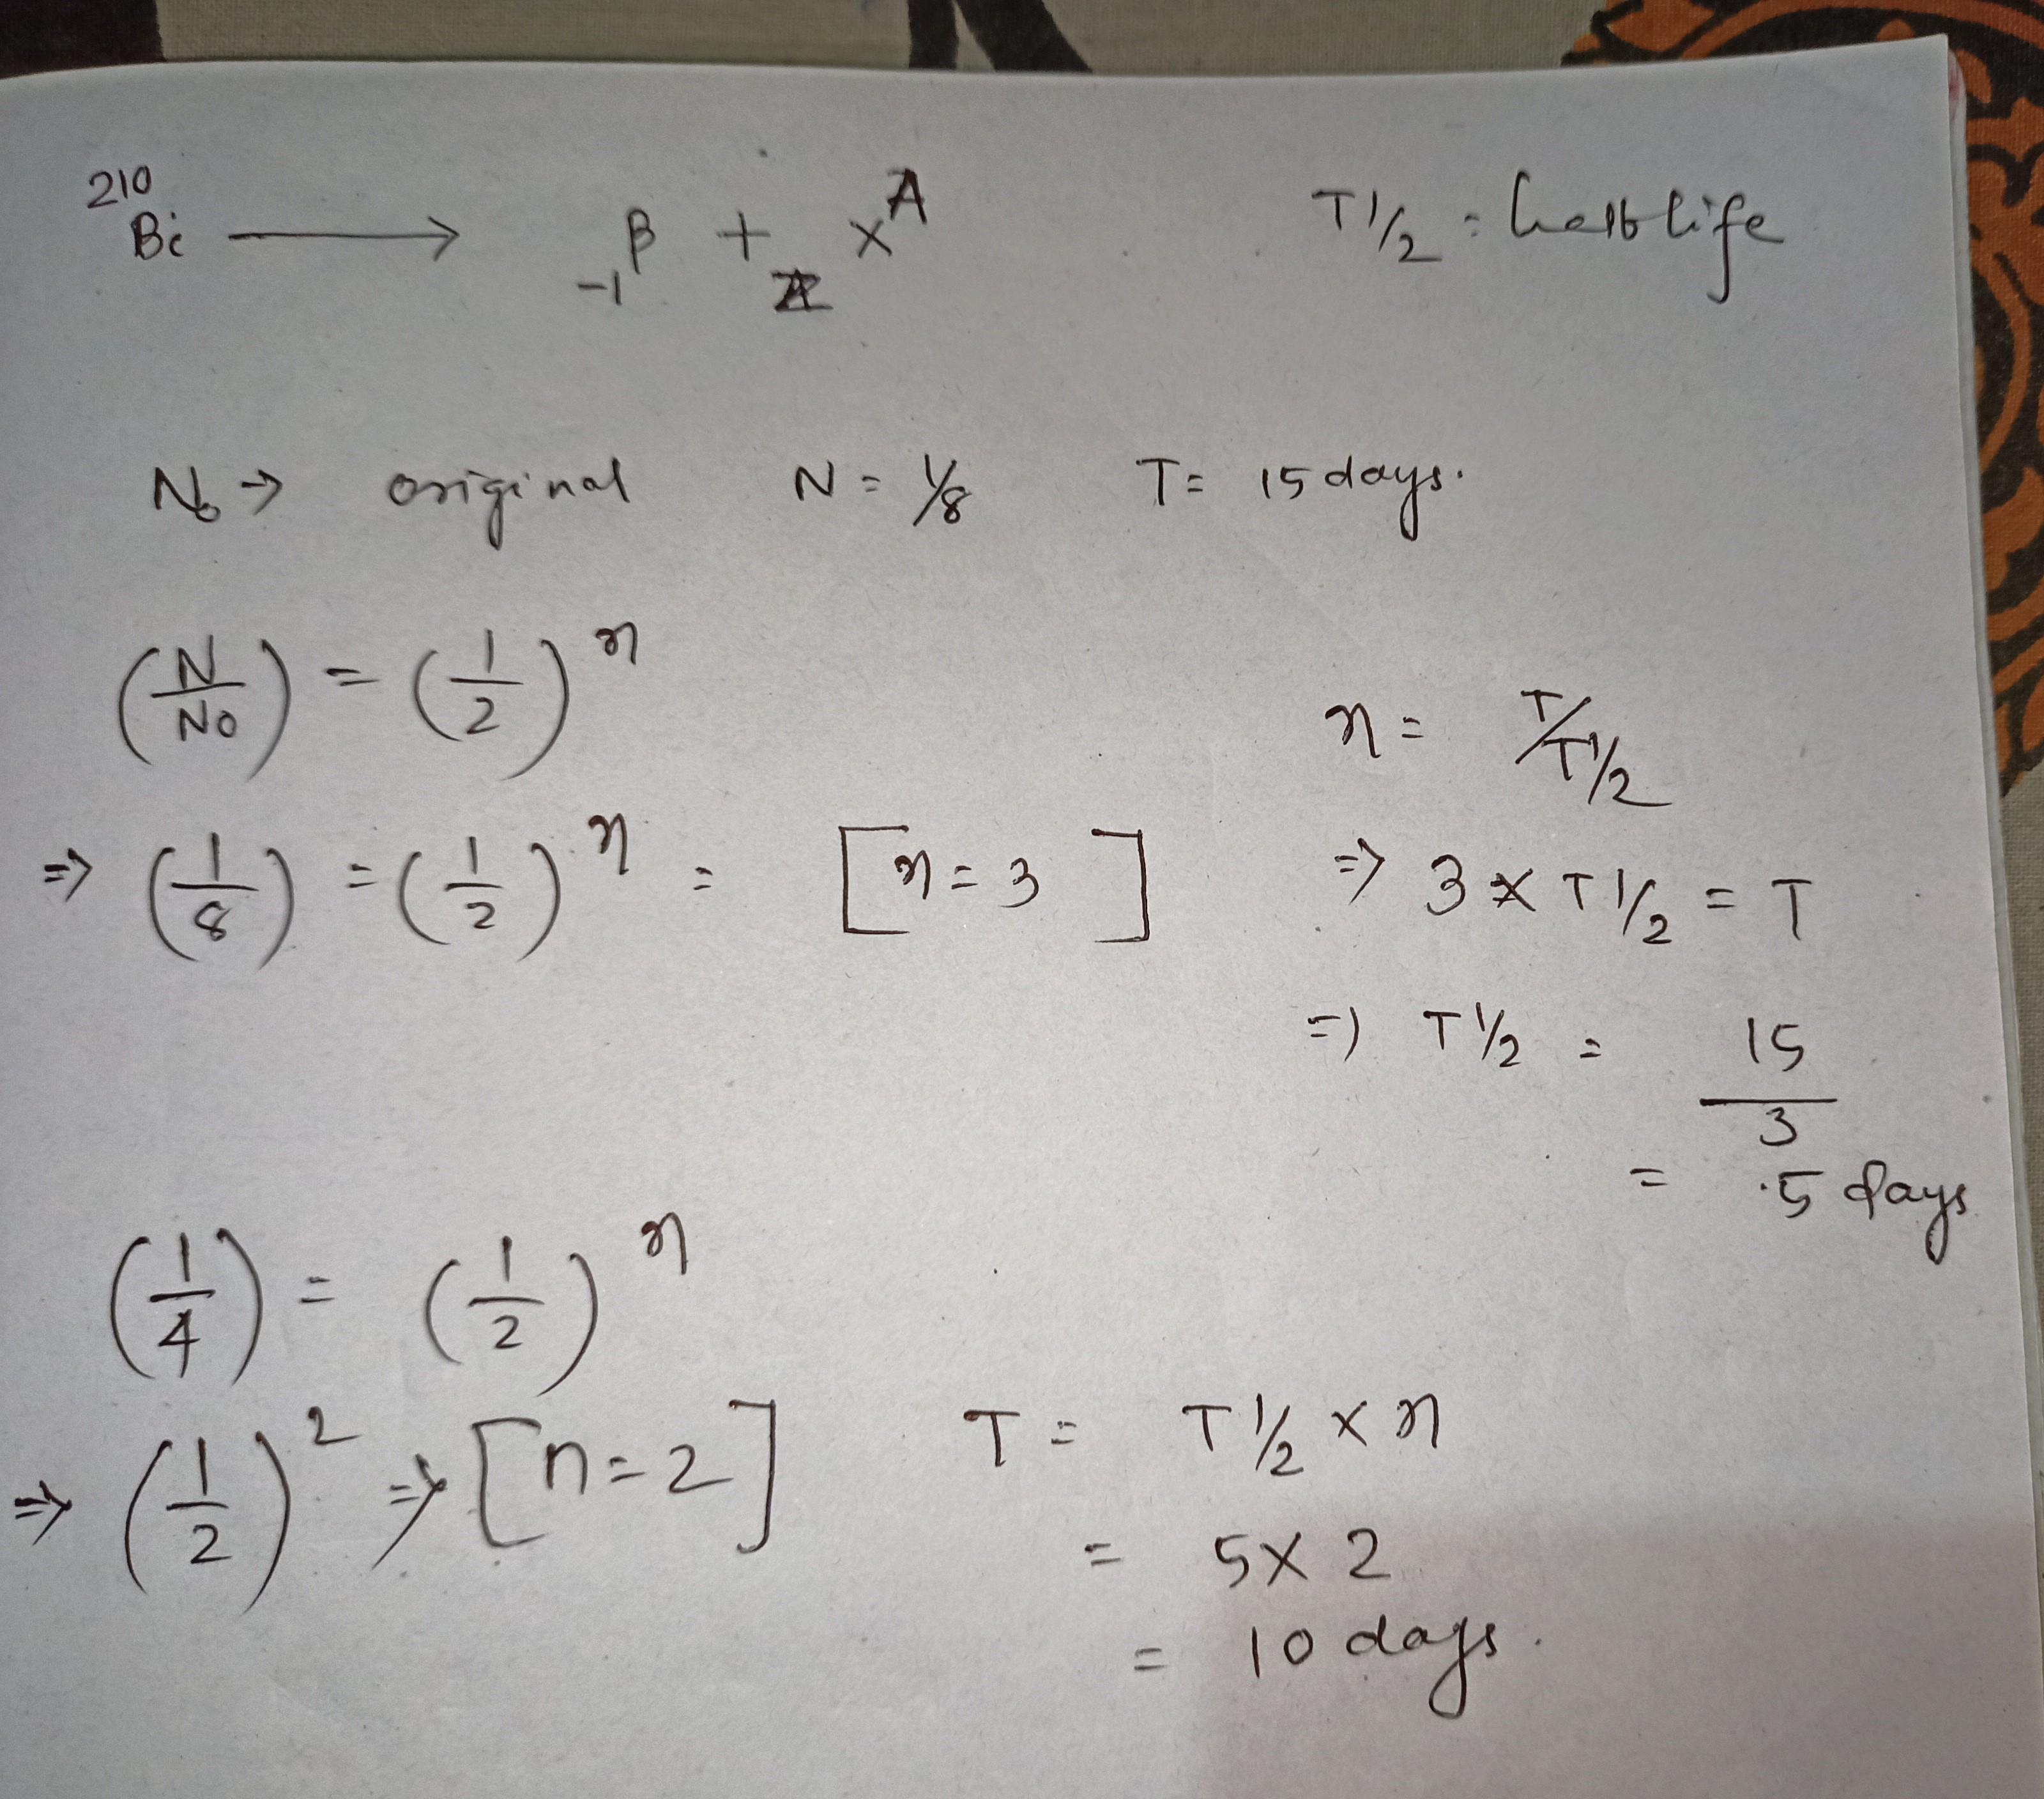 210Bi ⟶ -1β + ZX^A T1/2 = half life
N0 → original N = 1/8 T = 15 days.
(N/N0) = (1/2)^n
n = T/T1/2
⇒ (1/8) = (1/2)^n = [n = 3] ⇒ 3 × T1/2 = T
⇒ T1/2 = 15/3
= 5 days
(1/4) = (1/2)^n
⇒ (1/2)^2 ⇒ [n = 2] T = T1/2 × n
= 5 × 2
= 10 days.